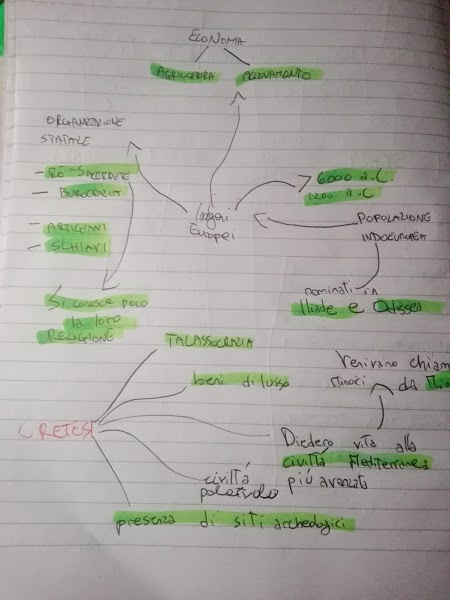 ECONOMIA
AGRICOLTURA ALLEVAMENTO
ORGANIZZAZIONE
STATALE
- RE-SACERDOTE
- BUROCRAZIA
- ARTIGIANI
- SCHIAVI
6000 a.C
1200 a.C
Europei
POPOLAZIONE
INDOEUROPEA
nominati in
Iliade e Odissea
Si conosce poco
la loro
RELIGIONE
TALASSOCRAZIA
beni di lusso
Venivano chiam
Minoici DA Min
CRETESI
Diedero vita alla
civiltà Mediterranea
più avanzata
civiltà
presenza di siti archeologici